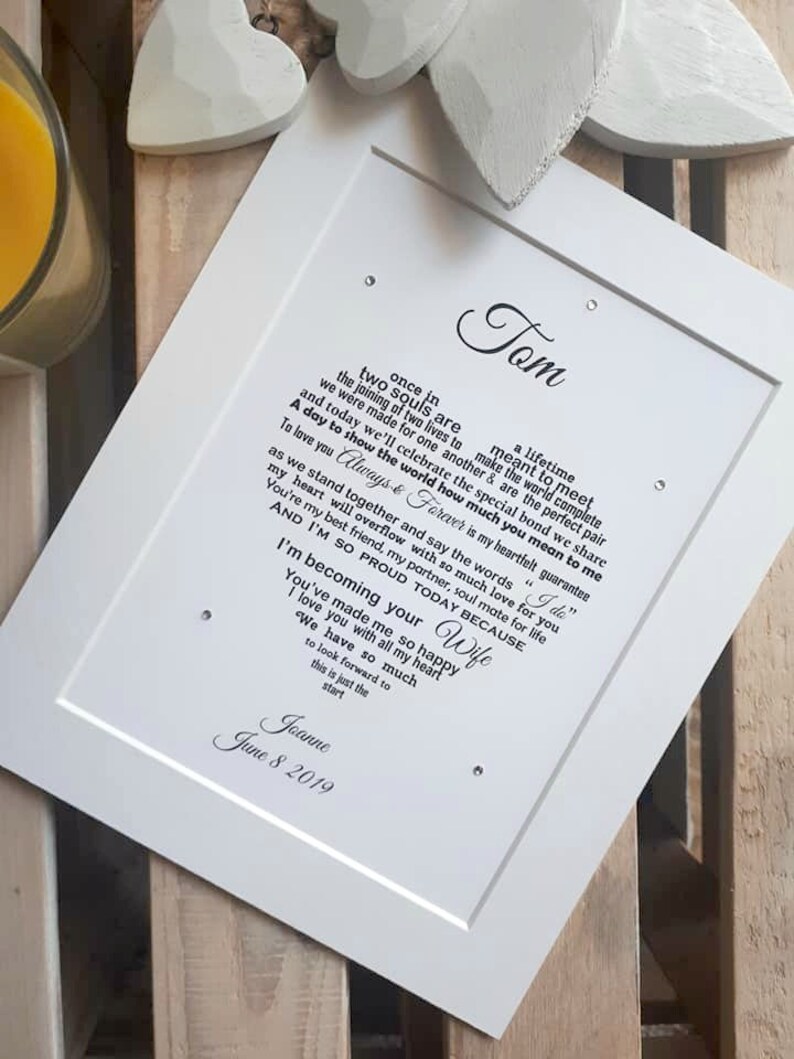 Tom
once in a lifetime
two souls are meant to meet
the joining of two lives to make the world complete
we were made for one another & are the perfect pair
and today we'll celebrate the special bond we share
A day to show the world how much you mean to me
To love you Always & Forever is my heartfelt guarantee
as we stand together and say the words "I do"
my heart will overflow with so much love for you
You're my best friend, my partner, soul mate for life
AND I'M SO PROUD TODAY BECAUSE
I'm becoming your Wife
You've made me so happy
I love you with all my heart
We have so much
to look forward to
this is just the
start
Joanne
June 8 2019